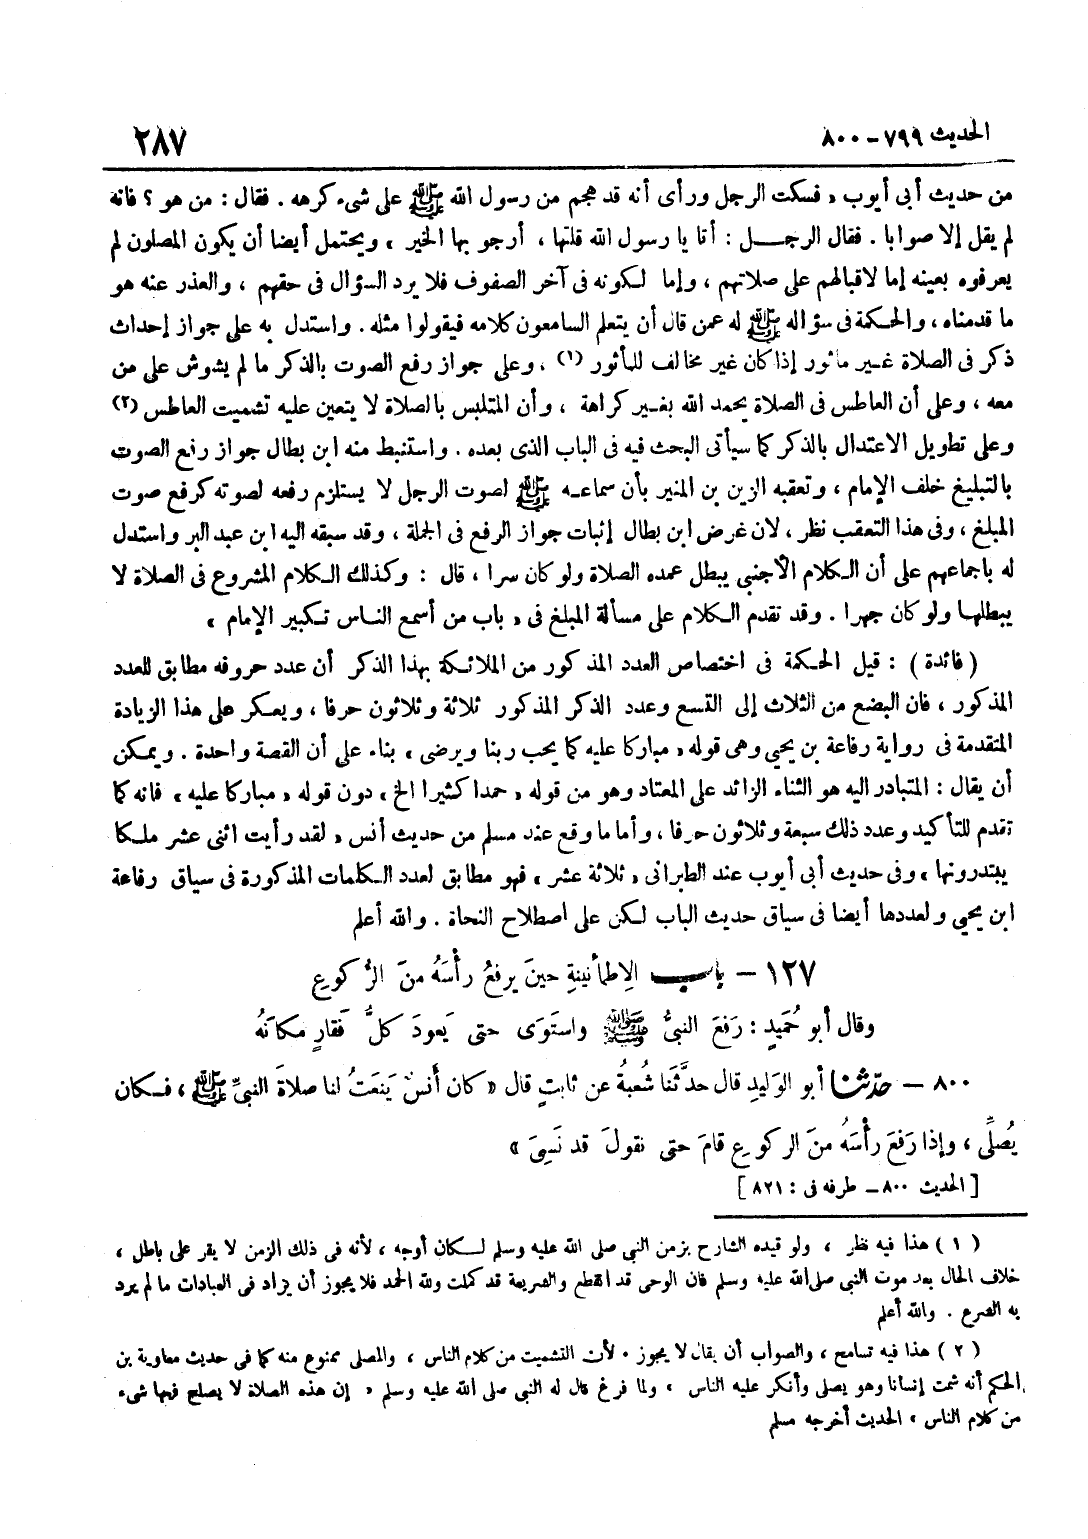 الحديث ٧٩٩ – ٨٠٠ ٢٨٧
من حديث أبى أيوب « فسكت الرجل ورأى أنه قد هجم من رسول الله ﷺ على شىء كرهه . فقال : من هو ؟ فانه
لم يقل إلا صوابا . فقال الرجل : أنا يا رسول الله قلتها ، أرجو بها الخير » ويحتمل أيضا أن يكون المصلون لم
يعرفوه بعينه إما لاقبالهم على صلاتهم ، وإما لكونه فى آخر الصفوف فلا يرد السؤال فى حقهم ، والعذر عنه هو
ما قدمناه ، والحكمة فى سؤاله ﷺ له عمن قال أن يتعلم السامعون كلامه فيقولوا مثله . واستدل به على جواز إحداث
ذكر فى الصلاة غير مأثور إذا كان غير مخالف للمأثور (١) ، وعلى جواز رفع الصوت بالذكر ما لم يشوش على من
معه ، وعلى أن العاطس فى الصلاة يحمد الله بغير كراهة ، وأن المتلبس بالصلاة لا يتعين عليه تشميت العاطس (٢)
وعلى تطويل الاعتدال بالذكر كما سيأتى البحث فيه فى الباب الذى بعده . واستنبط منه ابن بطال جواز رفع الصوت
بالتبليغ خلف الإمام ، وتعقبه الزين بن المنير بأن سماعه ﷺ لصوت الرجل لا يستلزم رفعه لصوته كرفع صوت
المبلغ ، وفى هذا التعقب نظر ، لان غرض ابن بطال إثبات جواز الرفع فى الجملة ، وقد سبقه اليه ابن عبد البر واستدل
له باجماعهم على أن الكلام الأجنبى يبطل عمده الصلاة ولو كان سرا ، قال : وكذلك الكلام المشروع فى الصلاة لا
يبطلها ولو كان جهرا . وقد تقدم الكلام على مسألة المبلغ فى « باب من أسمع الناس تكبير الإمام »
( فائدة ) : قيل الحكمة فى اختصاص العدد المذكور من الملائكة بهذا الذكر أن عدد حروفه مطابق للعدد
المذكور ، فان البضع من الثلاث إلى التسع وعدد الذكر المذكور ثلاثة وثلاثون حرفا ، ويعكر على هذا الزيادة
المتقدمة فى رواية رفاعة بن يحيى وهى قوله « مباركا عليه كما يحب ربنا ويرضى » بناء على أن القصة واحدة . ويمكن
أن يقال : المتبادر اليه هو الثناء الزائد على المعتاد وهو من قوله « حمدا كثيرا الخ » دون قوله « مباركا عليه » فانه كما
تقدم للتأكيد وعدد ذلك سبعة وثلاثون حرفا ، وأما ما وقع عند مسلم من حديث أنس « لقد رأيت اثنى عشر ملكا
يبتدرونها » وفى حديث أبى أيوب عند الطبرانى « ثلاثة عشر » فهو مطابق لعدد الكلمات المذكورة فى سياق رفاعة
ابن يحيى ولعددها أيضا فى سياق حديث الباب لكن على اصطلاح النحاة . والله أعلم
١٢٧ – باب الِاطمأنينةِ حينَ يرفعُ رأسَهُ منَ الرُّكوعِ
وقال أبو حُمَيدٍ : رَفَعَ النبىُّ ﷺ واستَوَى حتى يَعودَ كلُّ فَقارٍ مكانَهُ
٨٠٠ – حدّثنا أبو الوَليدِ قال حدَّثَنا شُعبةُ عن ثابتٍ قال « كان أنسٌ يَنعَتُ لنا صلاةَ النبىِّ ﷺ ، فكان
يُصلِّى ، وإذا رَفَعَ رأسَهُ منَ الركوعِ قامَ حتى نقولَ قد نَسِىَ »
[ الحديث ٨٠٠ – طرفه فى : ٨٢١ ]
( ١ ) هذا فيه نظر ، ولو قيده الشارح بزمن النبى صلى الله عليه وسلم لكان أوجه ، لأنه فى ذلك الزمن لا يقر على باطل ،
خلاف الحال بعد موت النبى صلى الله عليه وسلم فان الوحى قد انقطع والشريعة قد كملت ولله الحمد فلا يجوز أن يزاد فى العبادات ما لم يرد
به الشرع . والله أعلم
( ٢ ) هذا فيه تسامح ، والصواب أن يقال لا يجوز . لأن التشميت من كلام الناس ، والمصلى ممنوع منه كما فى حديث معاوية بن
الحكم أنه شمت إنسانا وهو يصلى وأنكر عليه الناس ، ولما فرغ قال له النبى صلى الله عليه وسلم « إن هذه الصلاة لا يصلح فيها شىء
من كلام الناس » الحديث أخرجه مسلم